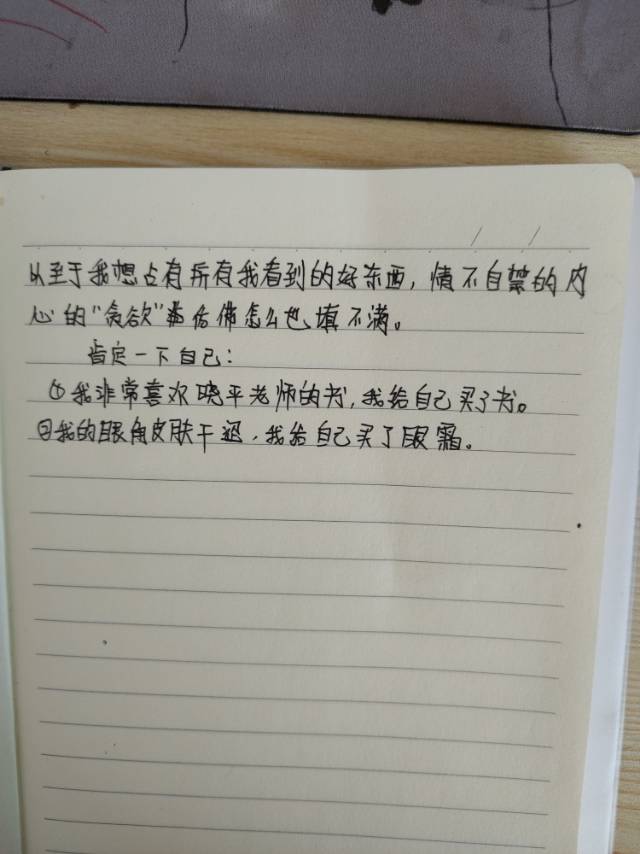 以至于我想占有所有我看到的好东西，情不自禁的内
心的“贪欲”仿佛怎么也填不满。
肯定一下自己：
①我非常喜欢晓平老师的书，我给自己买了书。
②我的眼角皮肤干，我给自己买了眼霜。